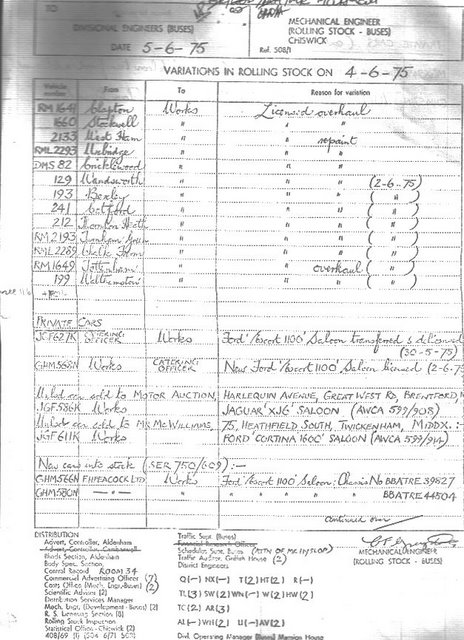 TO
DIVISIONAL ENGINEERS (BUSES)
DATE 5-6-75
MECHANICAL ENGINEER
(ROLLING STOCK - BUSES)
CHISWICK
Ref. 508/1
VARIATIONS IN ROLLING STOCK ON 4-6-75
Vehicle number From To Reason for variation
RM 1641 Clapton Works Licensed overhaul
1660 Stockwell " " "
2133 West Ham " " repaint
RML2293 Uxbridge " " "
DMS 82 Cricklewood " " "
129 Wandsworth " " " (2-6-75)
193 Bexley " " " ( " )
241 Catford " " " ( " )
212 Thornton Heath " " " ( " )
RM2193 Turnham Green " " " ( " )
RML2289 Chalk Farm " " " ( " )
RM1649 Tottenham " " overhaul ( " )
199 Walthamstow " " " ( " )
PRIVATE CARS
JGF627K CATERING OFFICER Works Ford 'Escort 1100' Saloon transferred & delicensed
(30-5-75)
GHM568N Works CATERING OFFICER New Ford 'Escort 1100' Saloon licensed (2-6-75
Used car sold to MOTOR AUCTION, HARLEQUIN AVENUE, GREAT WEST RD, BRENTFORD,
JGF586K Works JAGUAR 'XJ6' SALOON (AWCA 599/908)
Used car sold to MR McWILLIAMS, 75, HEATHFIELD SOUTH, TWICKENHAM, MIDDX. :-
JGF611K Works FORD 'CORTINA 1600' SALOON (AWCA 599/914)
New cars into stock (SER 750/609) :-
GHM566N FH PEACOCK LTD Works Ford 'Escort 1100' Saloon; Chassis No BBATRE 39827
GHM580N " " " " " BBATRE 44504
Continued over
DISTRIBUTION
Advert. Controller, Aldenham
Works Section, Aldenham
Body Spec. Section,
Central Record ROOM 34
Commercial Advertising Officer (7)
Costs Office (Mech. Engr. Buses) (2)
Scientific Adviser (2)
Distribution Services Manager
Mech. Engr. (Development - Buses) (2)
R. S. Licensing Section (8)
Rolling Stock Inspection
Statistical Office - Chiswick (2)
Traffic Supt. (Buses)
Financial Research Officer
Schedules Supt. Buses
Traffic Auditor, Griffith House (2)
District Engineers
Q(-) NX(-) T(2) HT(2) R(-)
TL(3) SW(2) WN(-) W(2) HW(2)
TC(2) AR(3)
AL(-) WH(2) U(-) AV(2)
Divl. Operating Manager (Buses) Mansion House
MECHANICAL ENGINEER
(ROLLING STOCK - BUSES)